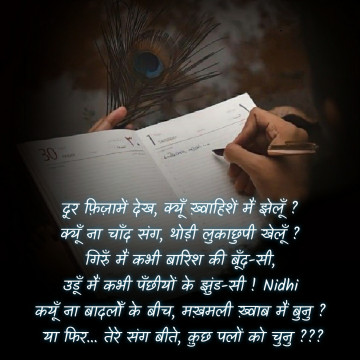 30
1
दूर फ़िज़ामें देख, क्यूँ ख़्वाहिशें मैं झेलूँ ?
क्यूँ ना चाँद संग, थोड़ी लुकाछुपी खेलूँ ?
गिरुँ मैं कभी बारिश की बूँद-सी,
उडूँ मैं कभी पँछीयों के झुंड-सी ! Nidhi
कयूँ ना बादलोँ के बीच, मख़मली ख़्वाब मैं बुनु ?
या फिर... तेरे संग बीते, कुछ पलों को चुनु ???